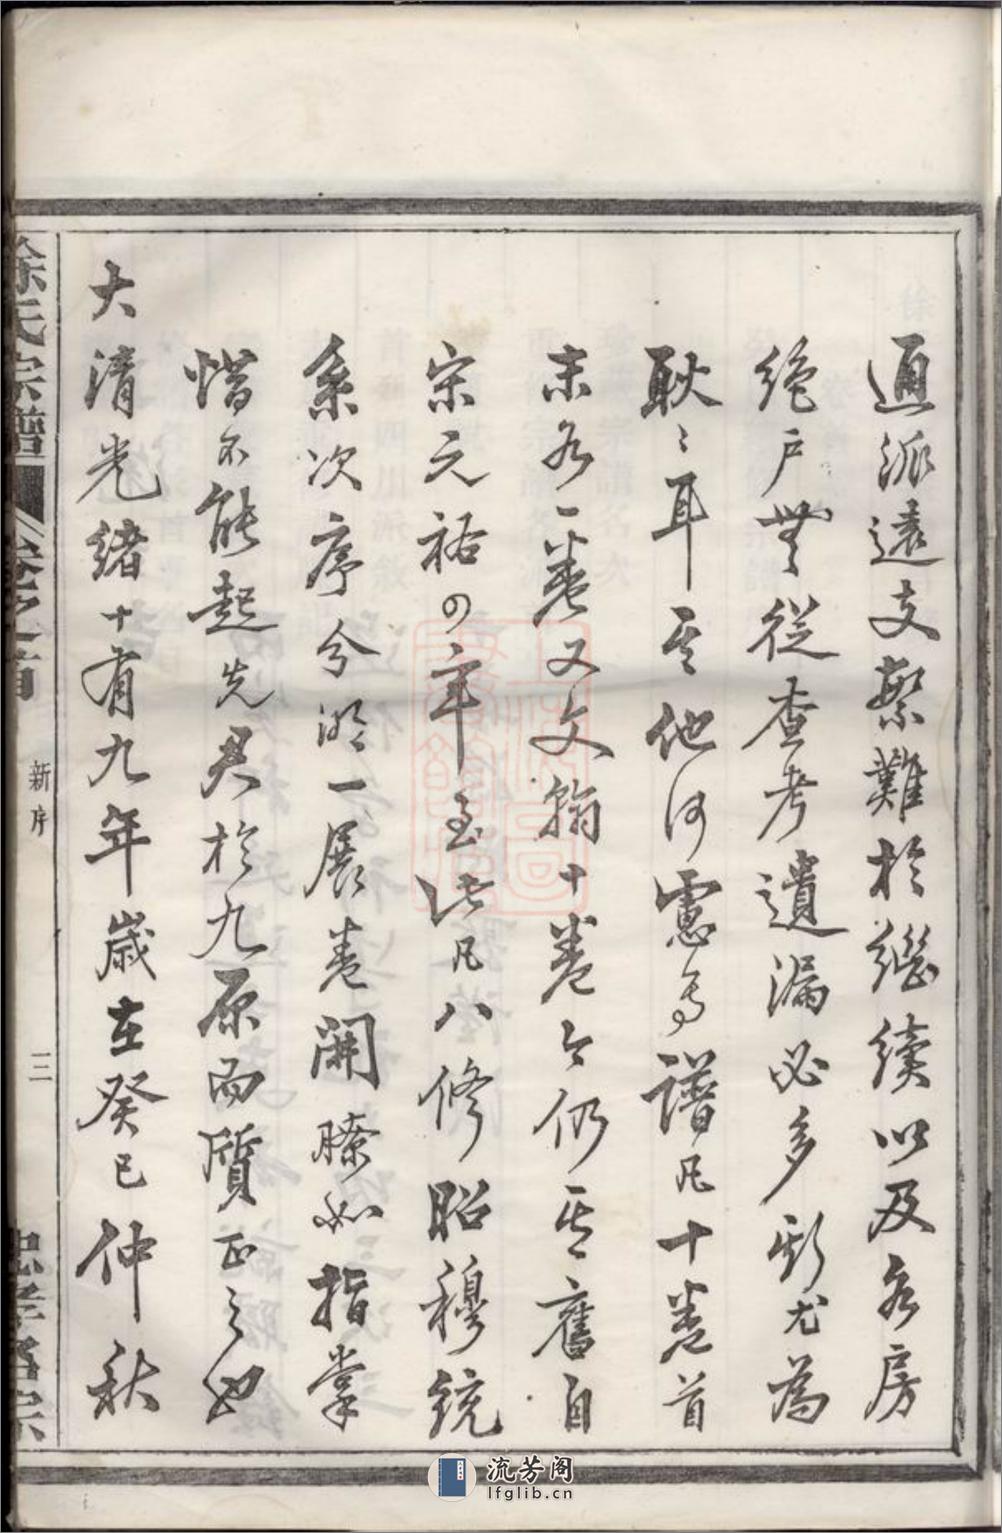 逈派遠支繁難於繼續以及各房
絶户無從查考遺漏必多斯尤為
耿〻耳其他何慮焉譜凡十卷首
末各一卷又文翰十卷今仍其舊自
宋元祐四年至此凡八修昭穆統
系次序分明一展卷開瞭如指掌
惜不能起先君於九原而質正之也
大清光緒十有九年歲在癸巳仲秋
徐氏宗譜
卷之首
新序
三
忠孝名宗
流芳阁
lfglib.cn